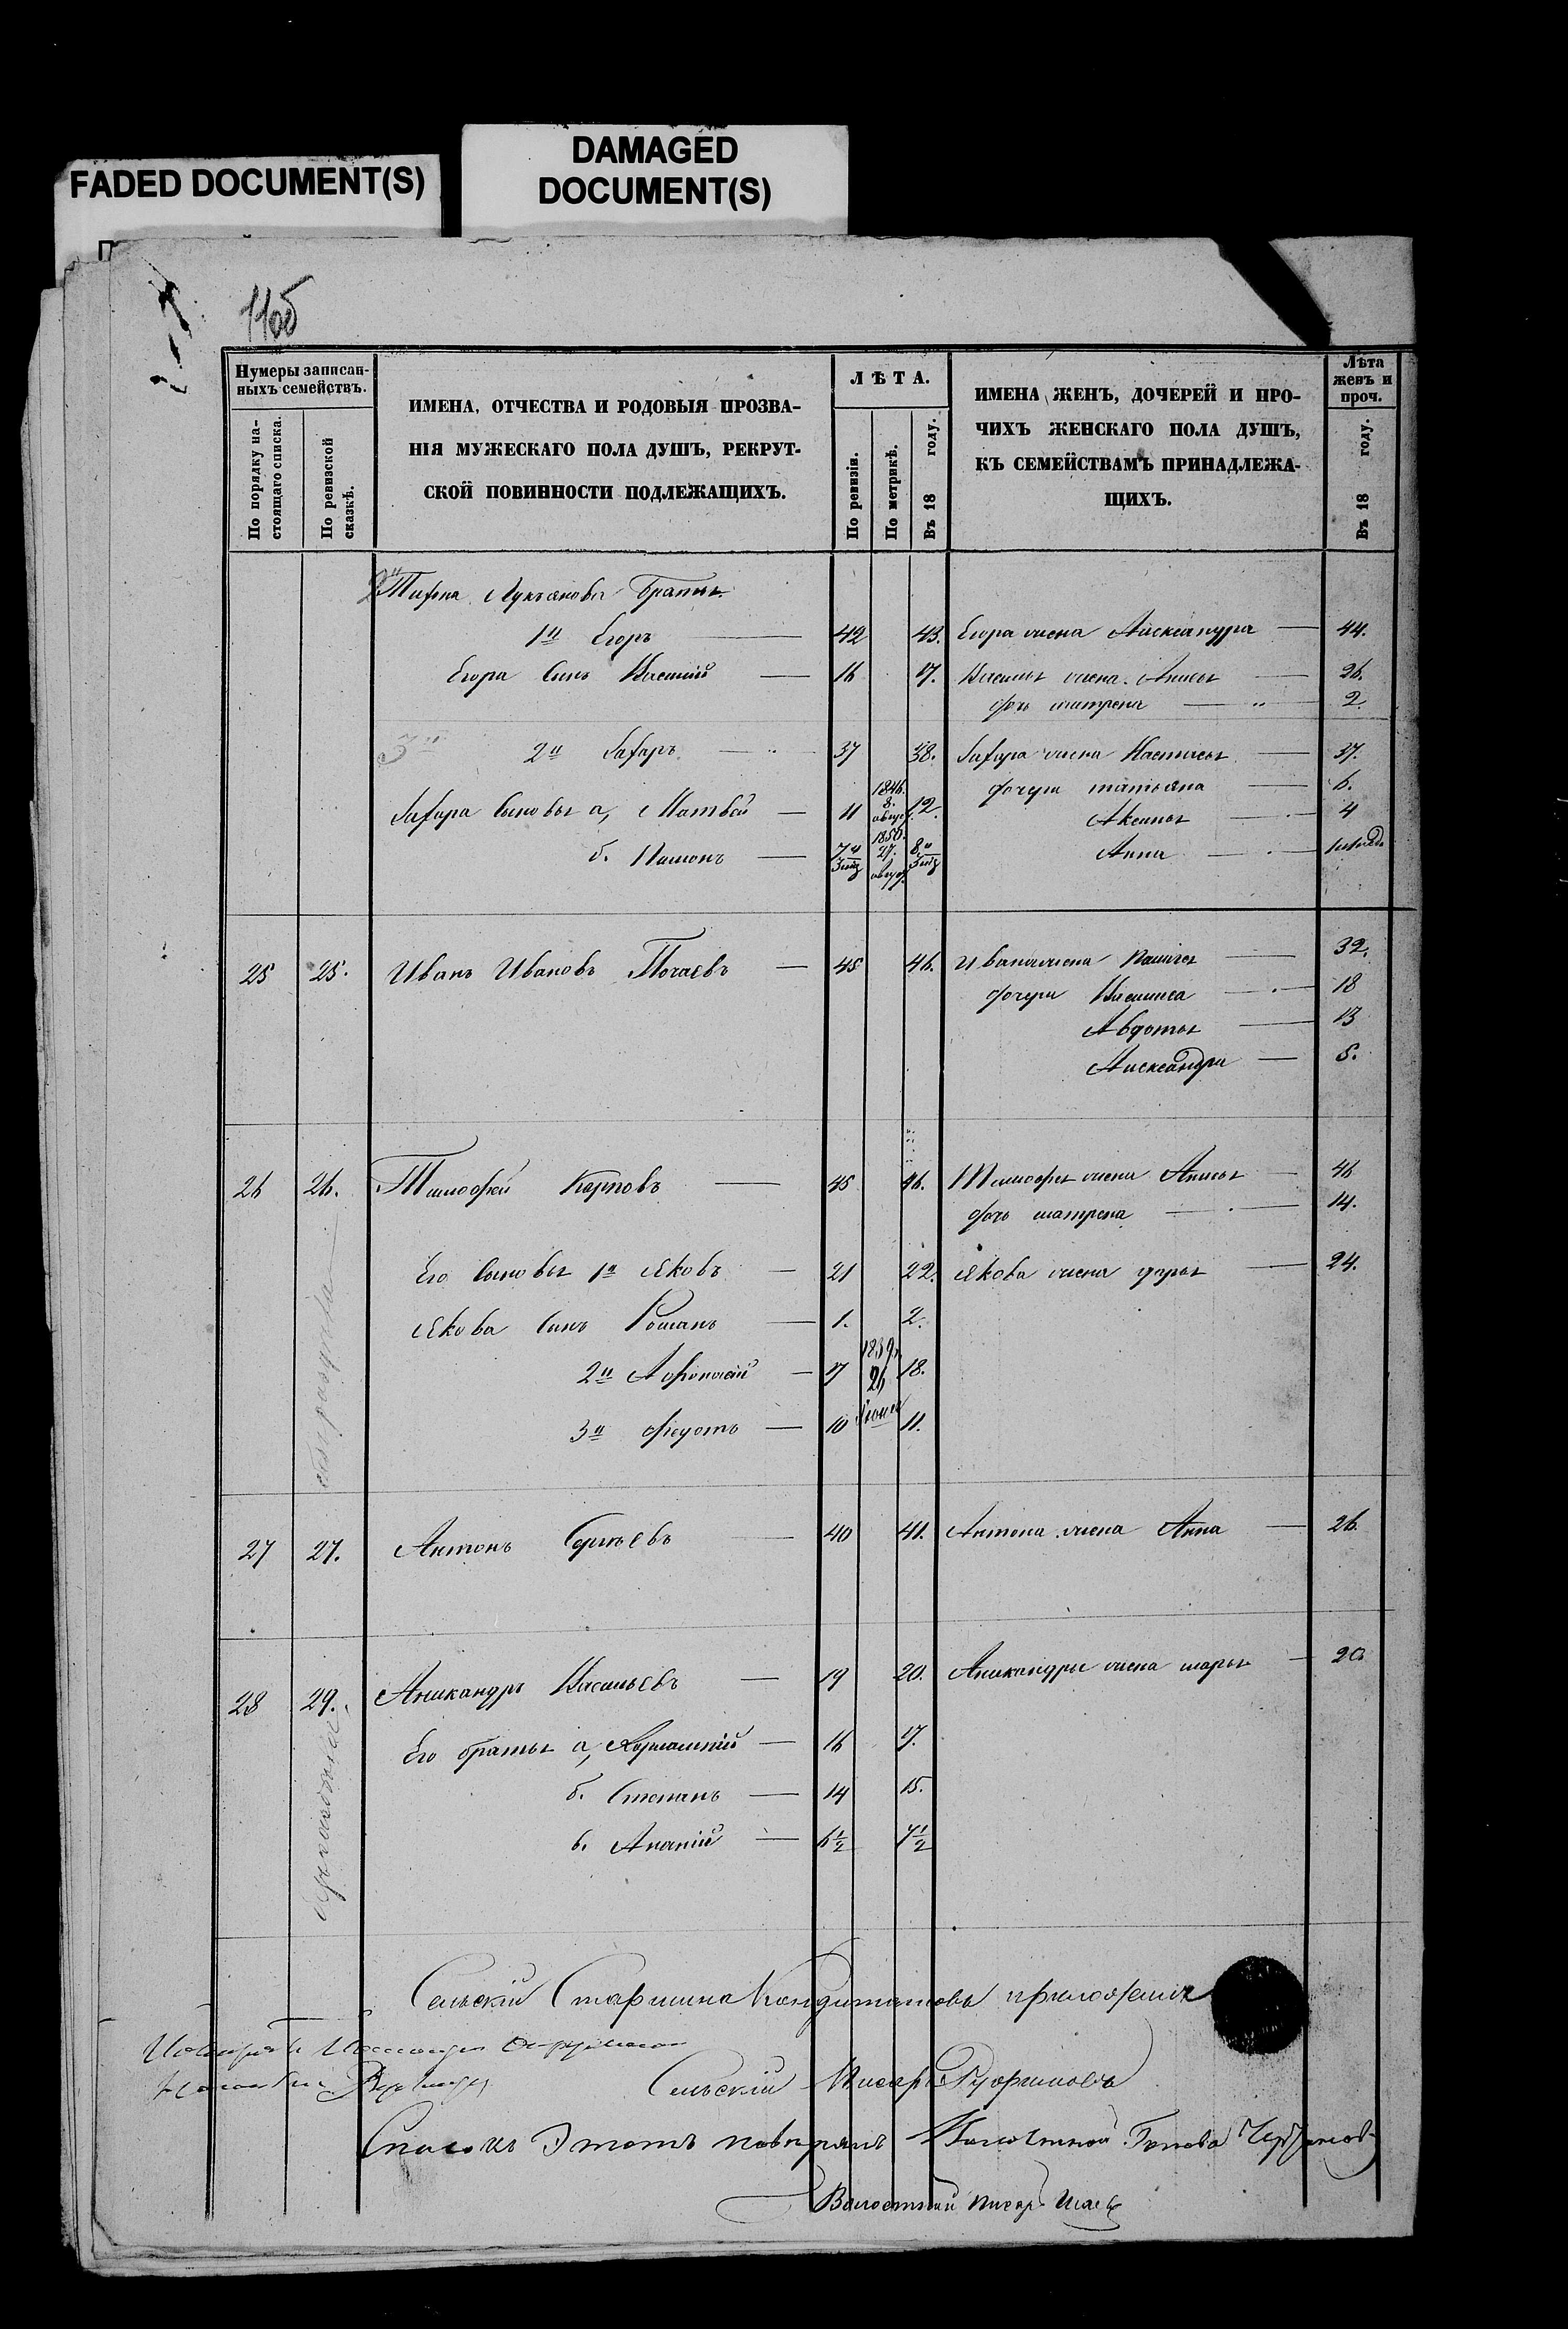 FADED DOCUMENT(S)
DAMAGED
DOCUMENT(S)
Нумеры записан-
ныхъ семействъ.
По порядку на-
стоящаго списка.
По ревизской
сказкѣ.
ИМЕНА, ОТЧЕСТВА И РОДОВЫЯ ПРОЗВА-
НІЯ МУЖЕСКАГО ПОЛА ДУШЪ, РЕКРУТ-
СКОЙ ПОВИННОСТИ ПОДЛЕЖАЩИХЪ.
ЛѢТА.
По ревизіи.
По метрикѣ.
Въ 18 году.
ИМЕНА ЖЕНЪ, ДОЧЕРЕЙ И ПРО-
ЧИХЪ ЖЕНСКАГО ПОЛА ДУШЪ,
КЪ СЕМЕЙСТВАМЪ ПРИНАДЛЕЖА-
ЩИХЪ.
Лѣта
женъ и
проч.
Въ 18 году.
Лукьянова братья
1й Егоръ 42 43. Егора жена Александра 44.
Егора сынъ Василий 16 17. Василья жена Анисья 26.
дочь матрена 2.
2й Захаръ 37 38. Захара жена Настасья 37.
Захара сыновья а, Матвей 11 1846. 8. август. 12. дочери татьяна 6.
Аксинья 4
б. 7 27. 8 Анна
25 25. Иванъ Ивановъ 45 46. Ивана жена 32.
дочери Василиса 18
Авдотья 13
Александра 5.
26 26. Тимофей Карповъ 45 46. Тимофея жена Анисья 46
дочь матрена 14.
Его сыновья 1й Яковъ 21 22. Якова жена дарья 24.
Якова сынъ Романъ 1. 2.
2й Афонасий 17 1839 26 18.
3й Федотъ 10 11.
27 27. Антонъ Сергѣевъ 40 41. Антона жена Анна 26.
28 29. Аникандръ Васильевъ 19 20. Аникандра жена марья 20
Его братья а, 16 17.
б. Степанъ 14 15.
в. Ананий 6½ 7½
Сельский Старшина Кандратовъ приложилъ
Сельский Писарь
Списокъ Этотъ повѣрялъ Волостной Голова
Волостный писарь